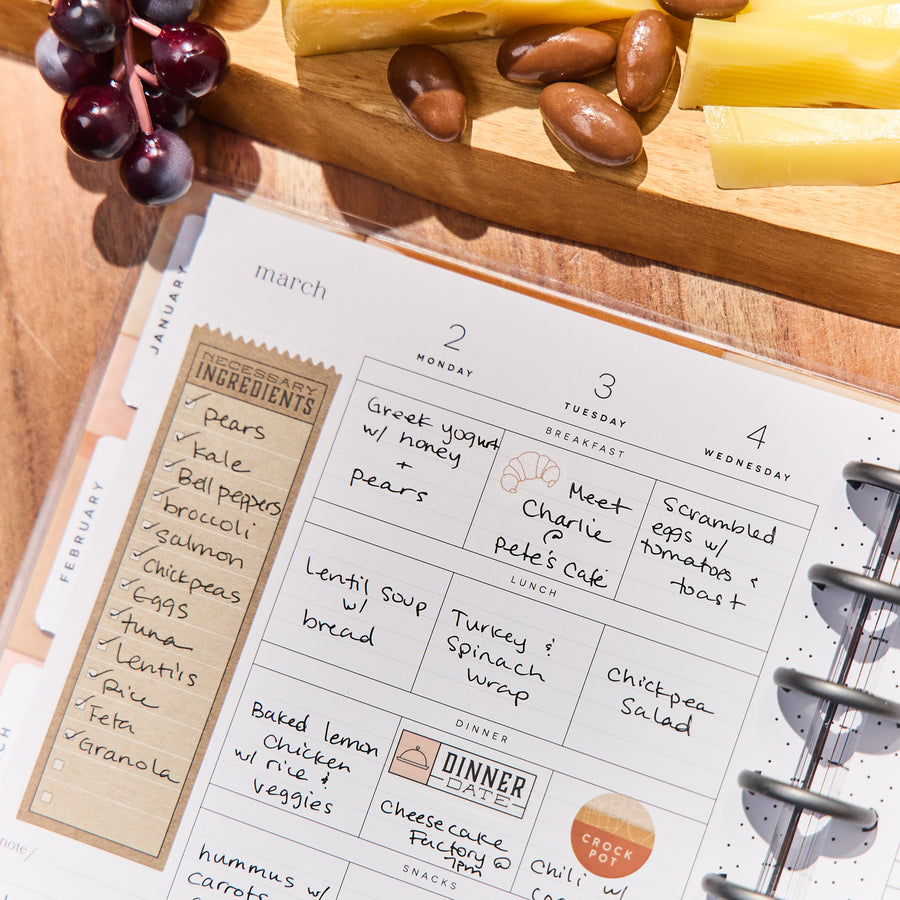 march
JANUARY
FEBRUARY
NECESSARY
INGREDIENTS
pears
kale
Bell peppers
broccoli
salmon
Chickpeas
Eggs
tuna
Lentils
Rice
Feta
Granola
note/
2
MONDAY
3
TUESDAY
4
WEDNESDAY
BREAKFAST
Greek yogurt
w/ honey
+
pears
Meet
Charlie
@
Pete's Café
Scrambled
eggs w/
tomatoes &
toast
LUNCH
Lentil soup
w/
bread
Turkey &
Spinach
wrap
Chickpea
Salad
DINNER
Baked lemon
Chicken
w/ rice &
veggies
DINNER
DATE
Cheesecake
Factory @
7pm
CROCK
POT
Chili w/
SNACKS
hummus w/
carrots